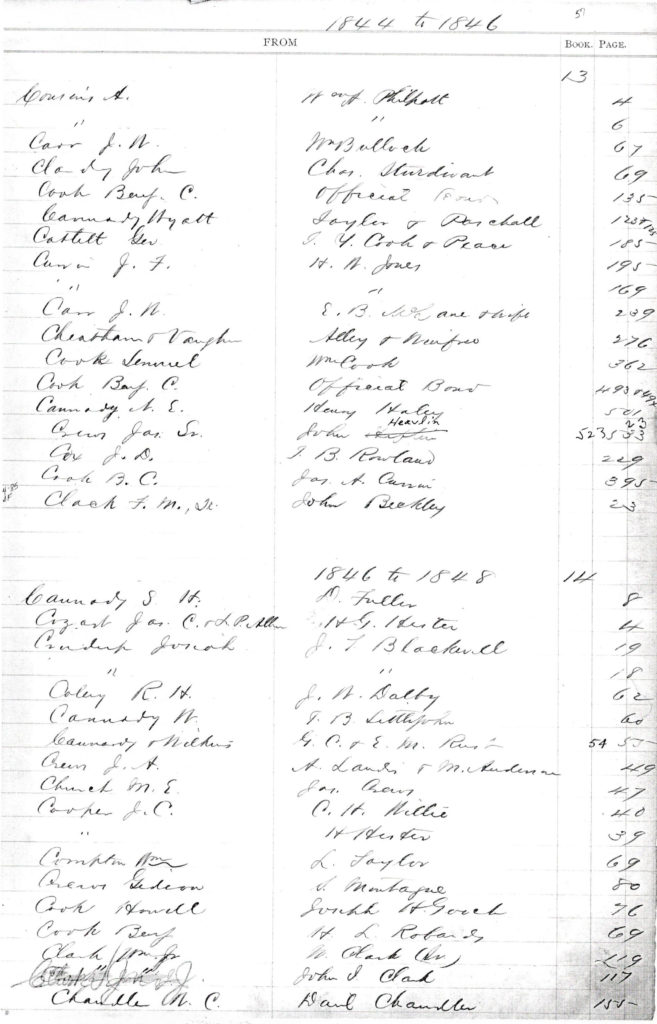 1844 to 1846
FROM BOOK. PAGE.
13
Cousins A. Philpott 4
" " 6
Carr J. W. Wm Bullock 67
John Chas. Sturdivant 69
Cook Benj. C. Official 135
Cannady Wyatt Taylor & Paschall
Geo T. Y. Cook & Peace 185
Currin J. F. H. W. Jones 195
" " 169
Carr J. W. E. B. & wife 239
Cheatham & Vaughn Alley & 276
Cook Lemuel Wm Cook 362
Cook Benj. C. Official Bond 493 & 494
Cannady N. E. Henry Haley 501
Crews Jas. Sr. John Heavlin 523
Cox J. D. T. B. Rowland 229
Cook B. C. Jas. A. Currin 395
Clack F. M., John Beckley 23
1846 to 1848 14
Cannady S. H. D. Fuller 8
Cozart Jas. C. & L. P. Allen H G. Hester 4
Crudup Josiah J. T Blackwell 19
" " 18
Coley R. H. J. W. Dalby 62
Cannady W. T. B. Littlejohn 60
Cannady & Wilkins G. C. & E. M. 54 55
Crews J. A. A. Landis & M. Anderson 49
Church M. E. Jas. Crews 47
Cooper J. C. C. H. Willie 40
" H Hester 39
Compton Wm L. Taylor 69
Crews Gideon Montague 80
Cook Howell Joseph H. Gooch 76
Cook Benj H. L. Robards 69
Clark Wm Jr W. Clark 119
John Clark 117
Chandler W. C. Danl Chandler 155